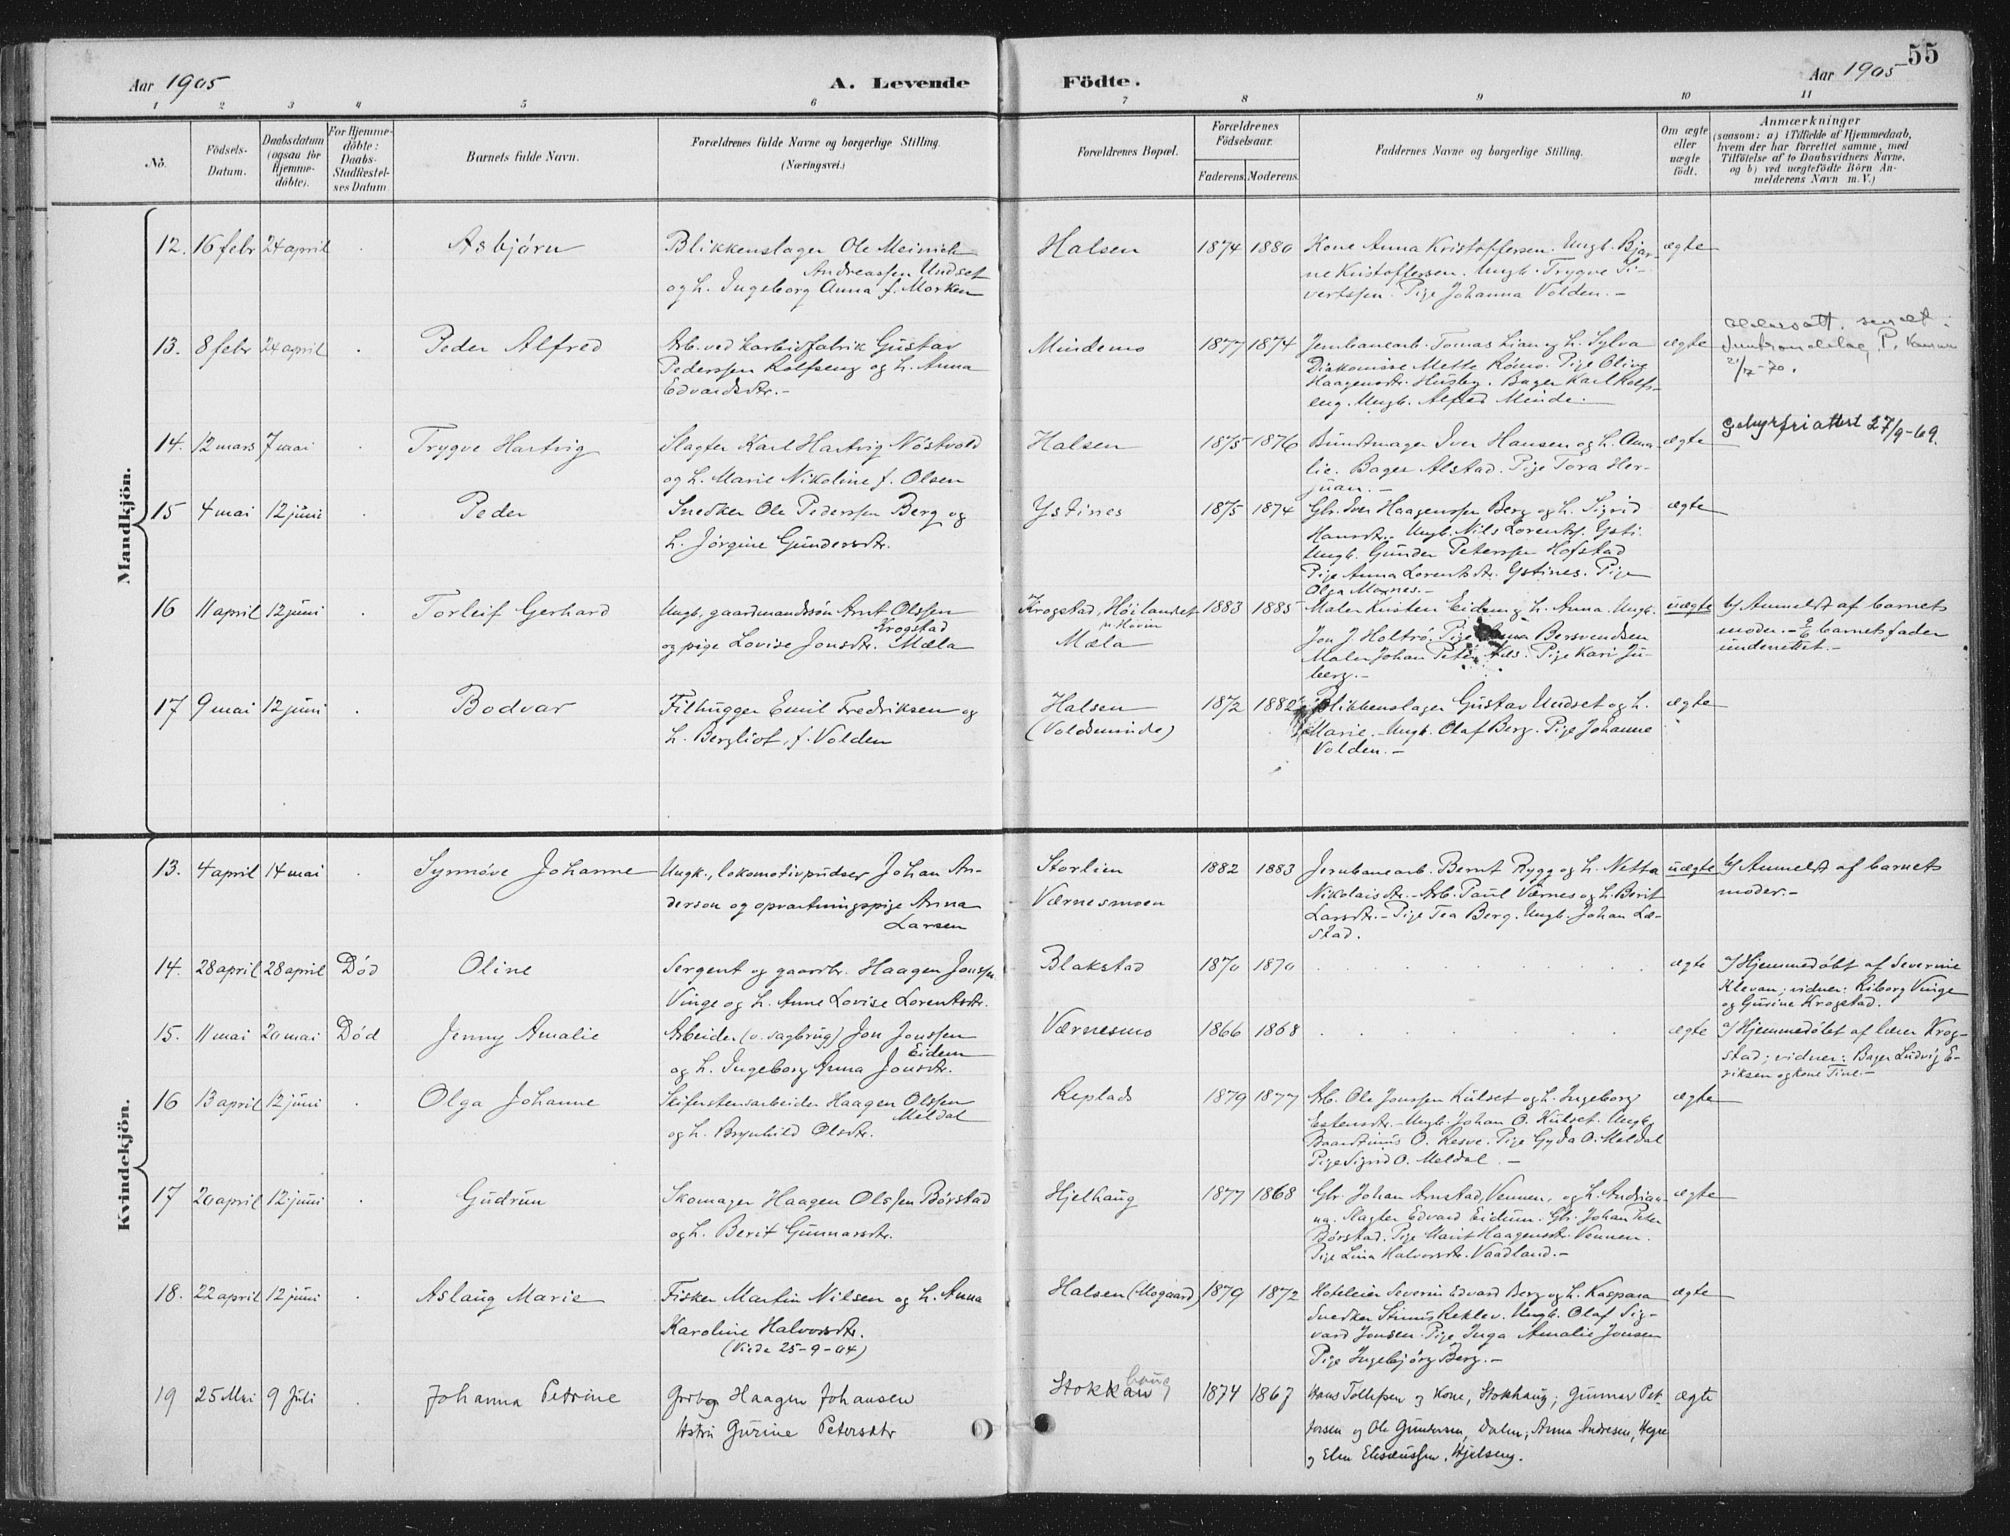 55
Aar 1905 A. Levende Födte. Aar 1905
1 2 3 4 5 6 7 8 9 10 11
No. Födsels-Datum. Daabsdatum (ogsaa for Hjemme-döbte). For Hjemme-döbte: Daabs-Stadfæstel-ses Datum Barnets fulde Navn. Forældrenes fulde Navne og borgerlige Stilling. (Næringsvei.) Forældrenes Bopæl. Forældrenes Födselsaar. Faderens. Moderens. Faddernes Navne og borgerlige Stilling. Om ægte eller uægte födt. Anmærkninger (saasom: a) i Tilfælde af Hjemmedaab, hvem der har forrettet samme, med Tilföielse af to Daabsvidners Navne, og b) ved uægtefödte Börn An-melderens Navn m. V.)
Mandkjön.
12. 16 febr 24 april Asbjørn Blikkenslager Ole Meinich Halsen 1874 1880 Kone Anna Kristoffersen. Ungk. Bjar- ægte
Andreassen Undset ne Kristoffersen. Ungk. Trygve Si-
og h. Ingeborg Anna f. Morken vertsen. Pige Johanna Volden. –
13. 8 febr 24 april Peder Alfred Arb. ved karbidfabrik Gustav Mindemo 1877 1874 Jernbanearb. Tomas Lian og h. Sylva ægte
Pederssen Rolfseng og h. Anna Diakonisse Mette Römo. Pige Oline
Edvardsdtr. – Haagensdtr. Husby. Bager Karl Rolfs-
eng. Ungk. Alfred Minde.
21/12-70.
14. 12 mars 7 mai Trygve Hartvig Slagter Karl Hartvig Nöstvold Halsen 1875 1876 Buntmager Iver Hansen og h. Ama- ægte Gebyrfri attest 27/9-69.
og h. Marie Nikoline f. Olsen lie. Bager Alstad. Pige Tora Her-
juan. –
15 4 mai 12 juni Peder Snedker Ole Pederssen Berg og Ystines 1875 1874 Gbr. Iver Haagenssen Berg og h. Sigrid ægte
h. Jörgine Gundersdtr. Hansdtr. Ungk. Nils Lorents. Ysti.
Ungk. Gunder Peterssen Hofstad
Pige Anna Lorentsdtr. Ystines. Pige
Olga Moxnes. –
16 11 april 12 juni Torleif Gerhard Ungk, gaardmandssön Arnt Olssen Krogstad, Höilandet 1883 1885 Maler Kristen Eidem og h. Anna. Ungk. uægte b/ Anmeldt af barnets
Krogstad Jon J. Holtrö. Pige Anna Bersvendsen moder. – 9/6 barnets fader
og pige Lovise Jonsdtr. Mæla Mæla Maler Johan Peter Nils. Pige Kari Ju- underrettet. –
berg. –
17 9 mai 12 juni Bodvar Filhugger Emil Fredriksen og Halsen 1872 1882 Blikkenslager Gustav Undset og h. ægte
h. Bergliot, f. Volden (Voldsminde) Marie. Ungk. Olaf Berg. Pige Johanne
Volden. –
Kvindekjön.
13. 4 april 14 mai Synnöve Johanne Ungk., lokomotivpudser Johan An- Storlien 1882 1883 Jernbanearb. Bernt Rygg og h. Netta uægte b/ Anmeldt af barnets
derson og opvartningspige Anna Værnesmoen Nikolaisdtr. – Arb. Paul Værnes og h. Berit moder. –
Larsen Larsdtr. – Pige Tea Berg. Ungk. Johan Læ-
stad.
14. 28 april 28 april Död Oline Sergent og gaardbr. Haagen Jonssen Blakstad 1870 1870 ægte a/ Hjemmedöbt af Severine
Vinge og h. Anne Lovise Lorentsdtr. Klevan; vidner: Riborg Vinge
og Gurine Krogstad.
15. 11 mai 20 mai Död Jenny Amalie Arbeider (v. sagbrug) Jon Jonssen Værnesmo 1866 1868 ægte a/ Hjemmedöbt af lærer Krog-
Eidem stad; vidner: Bager Ludvig E-
og h. Ingeborg Anna Jonsdtr. riksen og kone Tine. –
16 13 april 12 juni Olga Johanne Skiferstensarbeider Haagen Olssen Replads 1879 1877 Arb. Ole Jonssen Kulset og h. Ingeborg ægte
Meldal Estensdtr. Ungk. Johan O. Kulset. Ungk.
og h. Brynhild Olsdtr. Baardtinus O. Resve. Pige Gyda O. Meldal
Pige Sigrid O. Meldal. –
17 20 april 12 juni Gudrun Skomager Haagen Olssen Börstad Hjelhaug 1877 1868 Gbr. Johan Arnstad, Vennen, og h. Andrian- ægte
og h. Berit Gunnarsdtr. na. Slagter Edvard Eidum. Gbr. Johan Peter
Börstad. Pige Marit Haagensdtr. Vennen.
Pige Lina Halvorsdtr. Vaadland. –
18. 22 april 12 juni Aslaug Marie Fisker Martin Nilsen og h. Anna Halsen (Mogaard) 1879 1872 Hoteleier Severin Edvard Berg og h. Kaspara ægte
Karoline Halvorsdtr. Snedker Stinus Reklev. Ungk. Olaf Sig-
(Viede 25-9-04) vard Jonsen. Pige Inga Amalie Jonsen
Pige Ingebjörg Berg. –
19 25 Mai 9 Juli Johanna Petrine Grbr. Haagen Johansen Stokkan haug 1874 1867 Hans Tollefsen og Kone, Stokhaug; Gunnar Pet- ægte
Hstru Gurine Petersdtr tersen og Ole Gundersen, Dalen; Anna Andresen, Hegre
og Elen Eliseussen, Hjelseng.